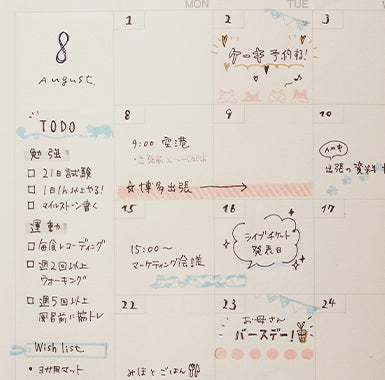 MON
TUE
8
August.
1
2
ケーキ予約好!
3
TODO
勉強
21日試験
1日1h以上やる!
マイルストーン書く
運動
毎食レコーディング
週2回以上
ウォーキング
週5回以上
風呂前に筋トレ
Wish list
・ヨガ用マット
8
9:00 空港
☆博多出張
9
10
AM中
出張の資料
15
15:00〜
マーケティング会議
16
ライブチケット
発表日
17
22
みほとごはん
23
お母さん
バースデー!
24